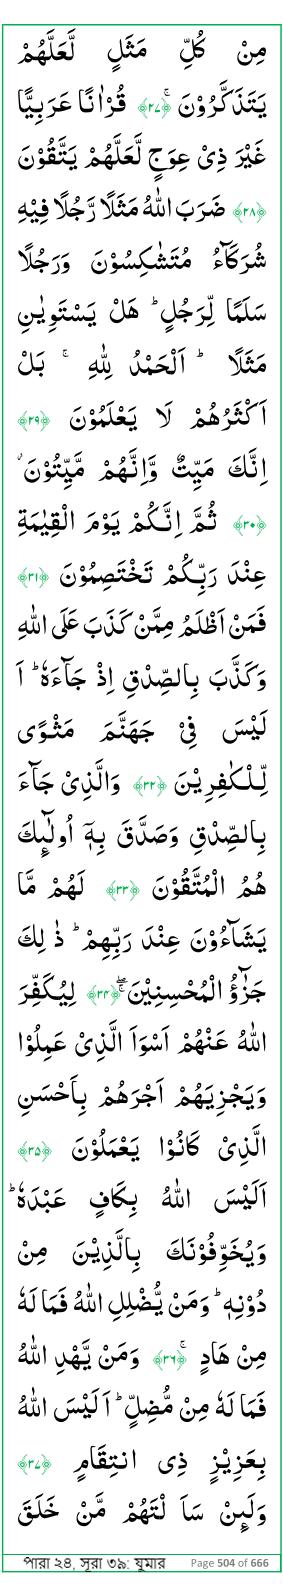 مِنْ كُلِّ مَثَلٍ لَّعَلَّهُمْ
يَتَذَكَّرُوْنَ ۚ﴿۲۷﴾ قُرْاٰنًا عَرَبِيًّا
غَيْرَ ذِىْ عِوَجٍ لَّعَلَّهُمْ يَتَّقُوْنَ
﴿۲۸﴾ ضَرَبَ اللّٰهُ مَثَلًا رَّجُلًا فِيْهِ
شُرَكَآءُ مُتَشٰكِسُوْنَ وَرَجُلًا
سَلَمًا لِّرَجُلٍ ؕ هَلْ يَسْتَوِيٰنِ
مَثَلًا ؕ اَلْحَمْدُ لِلّٰهِ ۚ بَلْ
اَكْثَرُهُمْ لَا يَعْلَمُوْنَ ﴿۲۹﴾
اِنَّكَ مَيِّتٌ وَّاِنَّهُمْ مَّيِّتُوْنَ ۙ
﴿۳۰﴾ ثُمَّ اِنَّكُمْ يَوْمَ الْقِيٰمَةِ
عِنْدَ رَبِّكُمْ تَخْتَصِمُوْنَ ﴿۳۱﴾
فَمَنْ اَظْلَمُ مِمَّنْ كَذَبَ عَلَى اللّٰهِ
وَكَذَّبَ بِالصِّدْقِ اِذْ جَآءَهٗ ؕ اَ
لَيْسَ فِىْ جَهَنَّمَ مَثْوًى
لِّلْكٰفِرِيْنَ ﴿۳۲﴾ وَالَّذِىْ جَآءَ
بِالصِّدْقِ وَصَدَّقَ بِهٖۤ اُولٰٓئِكَ
هُمُ الْمُتَّقُوْنَ ﴿۳۳﴾ لَهُمْ مَّا
يَشَآءُوْنَ عِنْدَ رَبِّهِمْ ؕ ذٰ لِكَ
جَزٰٓؤُ الْمُحْسِنِيْنَ ۚۖ﴿۳۴﴾ لِيُكَفِّرَ
اللّٰهُ عَنْهُمْ اَسْوَاَ الَّذِىْ عَمِلُوْا
وَيَجْزِيَهُمْ اَجْرَهُمْ بِاَحْسَنِ
الَّذِىْ كَانُوْا يَعْمَلُوْنَ ﴿۳۵﴾
اَلَيْسَ اللّٰهُ بِكَافٍ عَبْدَهٗ ؕ
وَيُخَوِّفُوْنَكَ بِالَّذِيْنَ مِنْ
دُوْنِهٖ ؕ وَمَنْ يُّضْلِلِ اللّٰهُ فَمَا لَهٗ
مِنْ هَادٍ ۚ﴿۳۶﴾ وَمَنْ يَّهْدِ اللّٰهُ
فَمَا لَهٗ مِنْ مُّضِلٍّ ؕ اَلَيْسَ اللّٰهُ
بِعَزِيْزٍ ذِى انتِقَامٍ ﴿۳۷﴾
وَلَٮِٕنْ سَاَ لْتَهُمْ مَّنْ خَلَقَ
পারা ২৪, সূরা ৩৯: যুমার Page 504 of 666